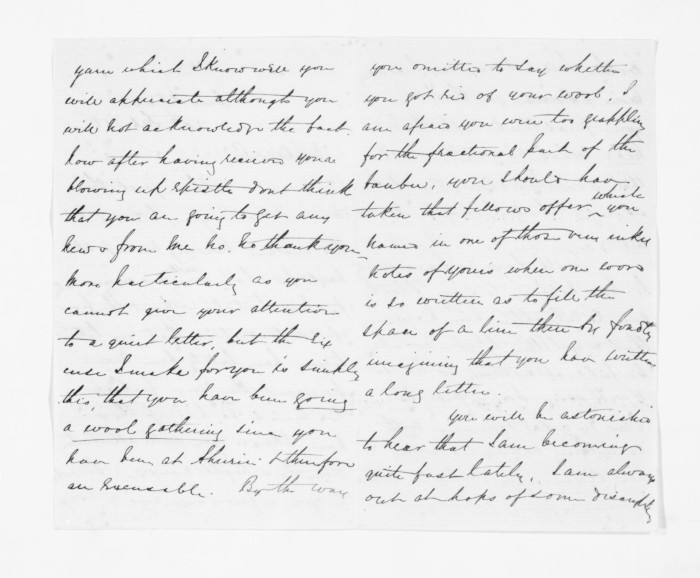 yarn which I know well you
will appreciate although you
will not acknowledge the fact.
Now after having received your
blowing up epistle dont think
that you are going to get any
news from me No. No thank you,
More particularly as you
cannot give your attention
to a quiet letter, but the Ex
cuse I make for you is simply
this, that you have been going
a wool gathering since you
have been at & therefore
are Excusable. By the way
you omitted to say whether
you got rid of your wool. I
am afraid you were too grappling
for the fractional part of the
You should have
taken that fellows offer which you
named in one of those very
notes of yours when one word
is so written as to fill the
space of a line there by fondly
imagining that you have written
a long letter.
You will be astonished
to hear that I am becoming
quite fast lately. I am always
out at hops of some